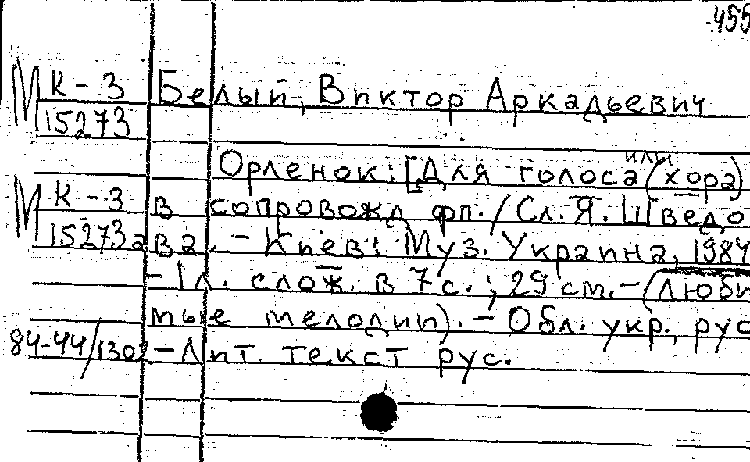 455
М К-3 Белый, Виктор Аркадьевич
15273
Орленок: [Для голоса или (хора)
М К-3 в сопровожд фп. / Сл. Я. Шведо
15273а ва. - Киев: Муз. Украина, 1984
- 1л. слож. в 7с.; 29 см. - (Люби
мые мелодии). - Обл. укр., рус
84-44/1302 - Лит. текст рус.